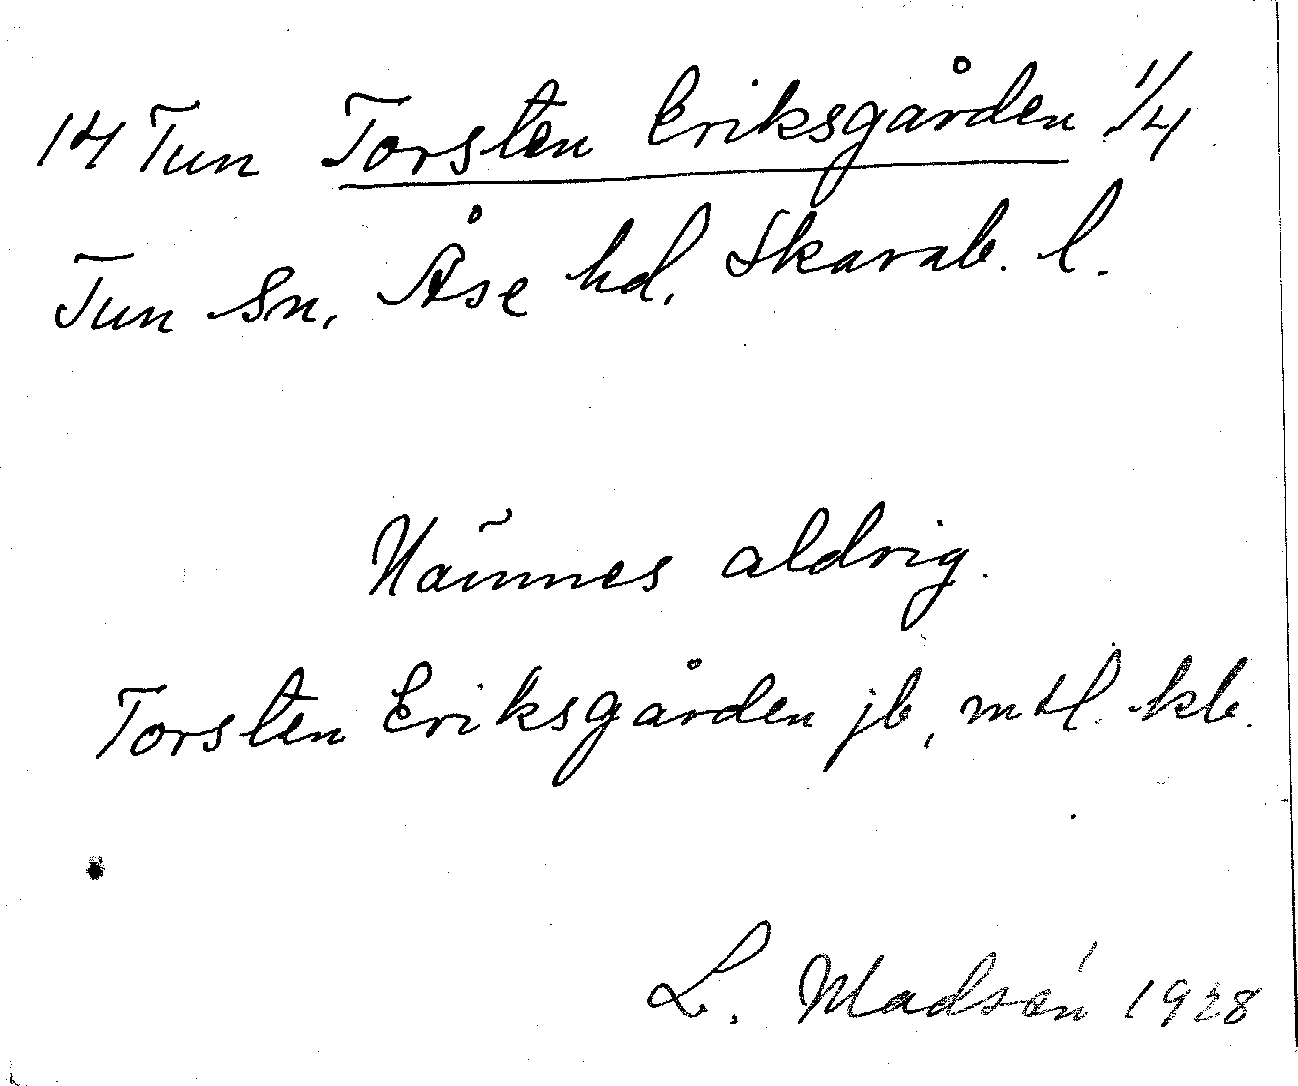 14 Tun Torsten Eriksgården 1/4
Tun Sn, Åse hd, Skarab. l.
Nämnes aldrig.
Torsten Eriksgården jb, mtl. kb.
L. Madsén 1928